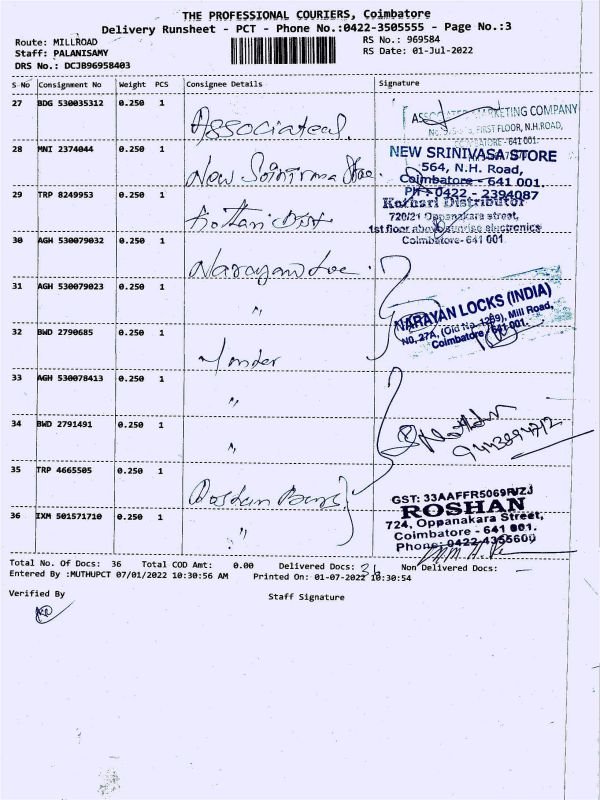 THE PROFESSIONAL COURIERS, Coimbatore
Delivery Runsheet - PCT - Phone No.:0422-3505555 - Page No.:3
Route: MILLROAD
RS No.: 969584
Staff: PALANISAMY
RS Date: 01-Jul-2022
DRS No.: DCJB96958403
S No Consignment No Weight PCS Consignee Details Signature
27 BDG 530035312 0.250 1 Associated.
ASSOCIATED MARKETING COMPANY
FIRST FLOOR, N.H.ROAD,
COIMBATORE - 641 001.
28 MNI 2374044 0.250 1 New
NEW SRINIVASA STORE
564, N.H. Road,
Coimbatore - 641 001.
PH : 0422 - 2394087
29 TRP 8249953 0.250 1 Kottari Dist
Kothari Distributor
720/21 Oppanakara street,
1st floor above sunrise electronics
Coimbatore- 641 001
30 AGH 530079032 0.250 1 Narayan Loc.
31 AGH 530079023 0.250 1 "
NARAYAN LOCKS (INDIA)
NO, 27A, (Old No. 1269), Mill Road,
Coimbatore - 641 001.
32 BWD 2790685 0.250 1
33 AGH 530078413 0.250 1 "
34 BWD 2791491 0.250 1 "
35 TRP 4665505 0.250 1 Roshan
GST: 33AAFFR5069R1ZJ
ROSHAN
724, Oppanakara Street,
Coimbatore - 641 001.
Phone: 0422 4355600
36 IXM 501571710 0.250 1 "
Total No. Of Docs: 36 Total COD Amt: 0.00 Delivered Docs: 36 Non Delivered Docs: —
Entered By :MUTHUPCT 07/01/2022 10:30:56 AM Printed On: 01-07-2022 10:30:54
Verified By
Staff Signature